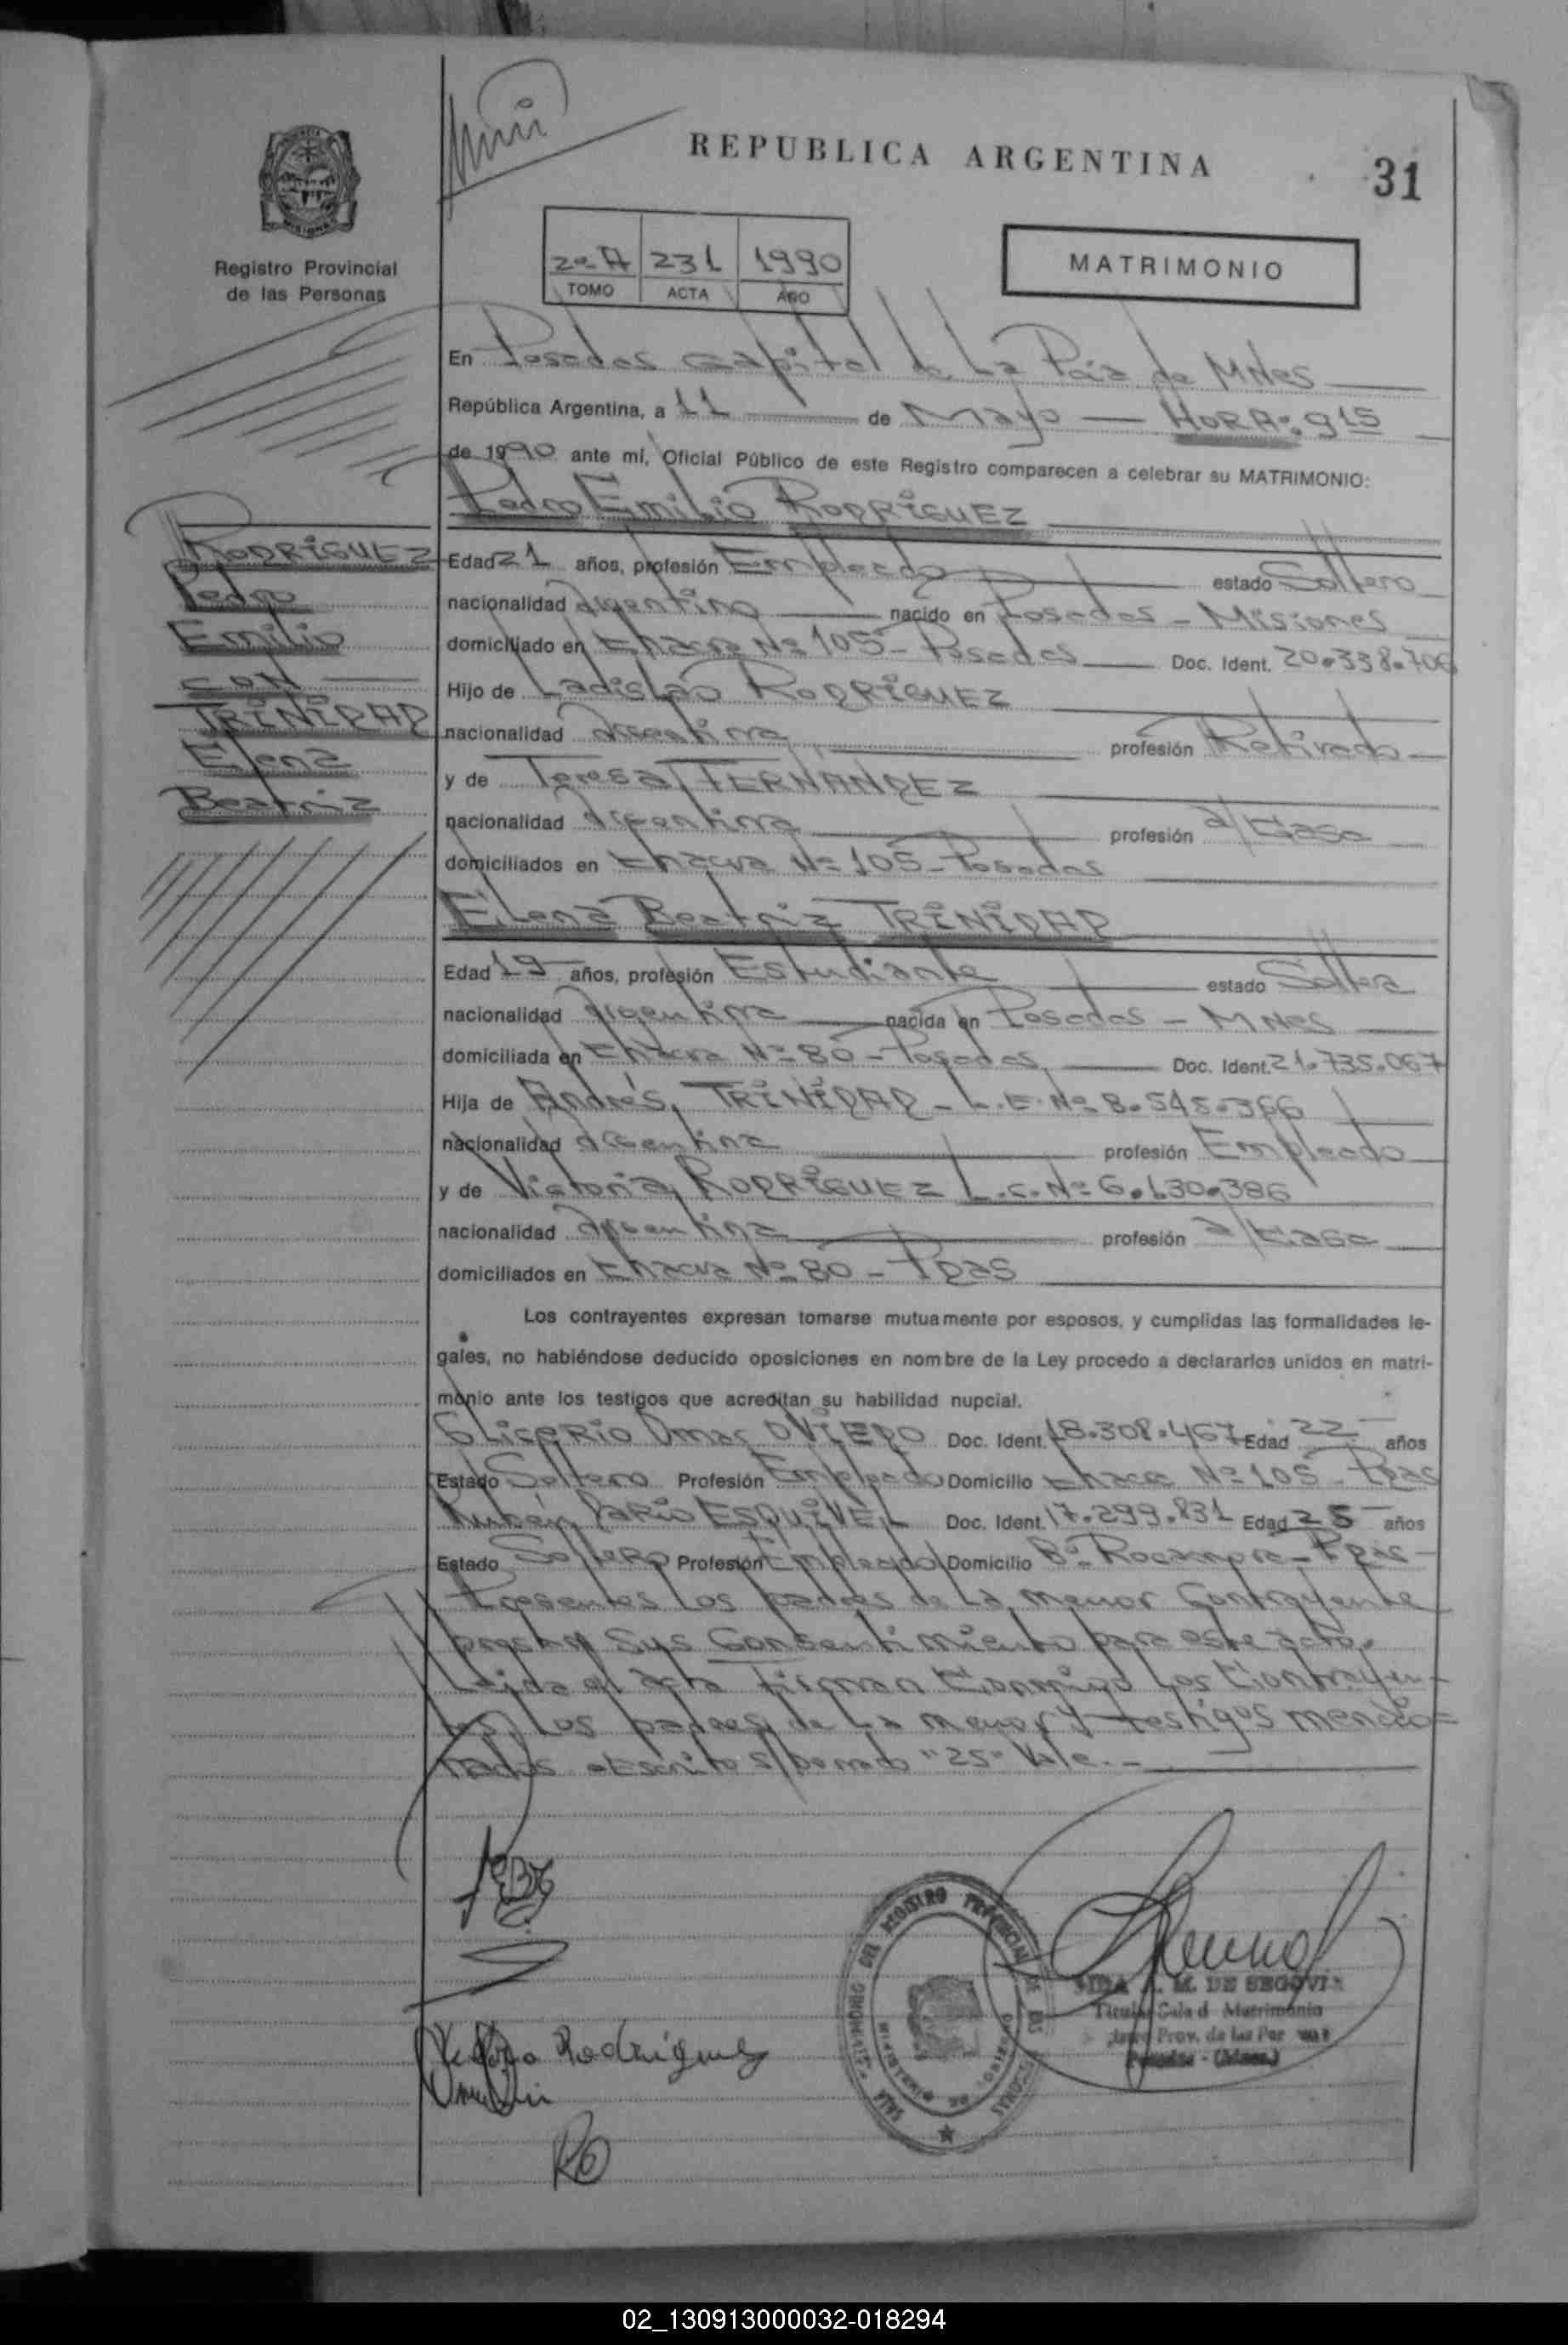 REPUBLICA ARGENTINA
31
Registro Provincial
de las Personas
2º A 231 1990
TOMO ACTA AÑO
MATRIMONIO
En Posadas Capital de La Pcia de MNes
República Argentina, a 11 de Mayo HORA: 915
de 1990 ante mí, Oficial Público de este Registro comparecen a celebrar su MATRIMONIO:
Pedro Emilio RODRIGUEZ
RODRIGUEZ
Pedro
Emilio
CON
TRINIDAD
Elena
Beatriz
Edad 21 años, profesión Empleado estado Soltero
nacionalidad Argentino nacido en Posadas - Misiones
domiciliado en Chacra Nº 105 - Posadas Doc. Ident. 20.338.706
Hijo de Ladislao RODRIGUEZ
nacionalidad Argentina profesión Retirado
y de Teresa FERNANDEZ
nacionalidad Argentina profesión a/Casa
domiciliados en Chacra Nº 105 - Posadas
Elena Beatriz TRINIDAD
Edad 19 años, profesión Estudiante estado Soltera
nacionalidad Argentina nacida en Posadas - MNes
domiciliada en Chacra Nº 80 - Posadas Doc. Ident. 21.735.067
Hija de Andrés TRINIDAD - L.E. Nº 8.545.366
nacionalidad Argentina profesión Empleado
y de Victoria RODRIGUEZ L.C. Nº 6.630.386
nacionalidad Argentina profesión a/Casa
domiciliados en Chacra Nº 80 - Pdas
Los contrayentes expresan tomarse mutuamente por esposos, y cumplidas las formalidades le-
gales, no habiéndose deducido oposiciones en nombre de la Ley procedo a declararlos unidos en matri-
monio ante los testigos que acreditan su habilidad nupcial.
Glicerio Omar OVIEDO Doc. Ident. 18.308.467 Edad 22 años
Estado Soltero Profesión Empleado Domicilio Chacra Nº 105 - Pdas
Rubén Dario ESQUIVEL Doc. Ident. 17.299.831 Edad 25 años
Estado Soltero Profesión Empleado Domicilio Bº Rocamora - Pdas
Presentes Los padres de La menor Contrayente
prestan sus Consentimiento para este acto.
Leida el acta Firman Conmigo Los Contrayen-
tes, Los padres de La menor y testigos mencio=
nados. Escrito s/borrado "25" Vale.-
Victoria Rodriguez
SALA MATRIMONIO DEL REGISTRO PROVINCIAL DE LAS PERSONAS
MINISTERIO DE GOBIERNO
M. DE SEGOVIA
Titular Sala d Matrimonio
Prov. de las Per
Posadas - (Mnes.)
02_130913000032-018294